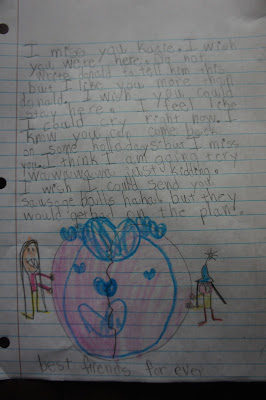 I miss you Kasie. I wish
you were here. Do not
write donald to tell him this
but I like you more than
donald. I wish you could
stay here. I feel like
I could cry right now. I
know you can come back
on some holladays but I miss
you. I think I am going to cry
wawawawa just kidding.
I wish I could send you
sausage balls hahah but they
would get on the plan.
best friends for ever